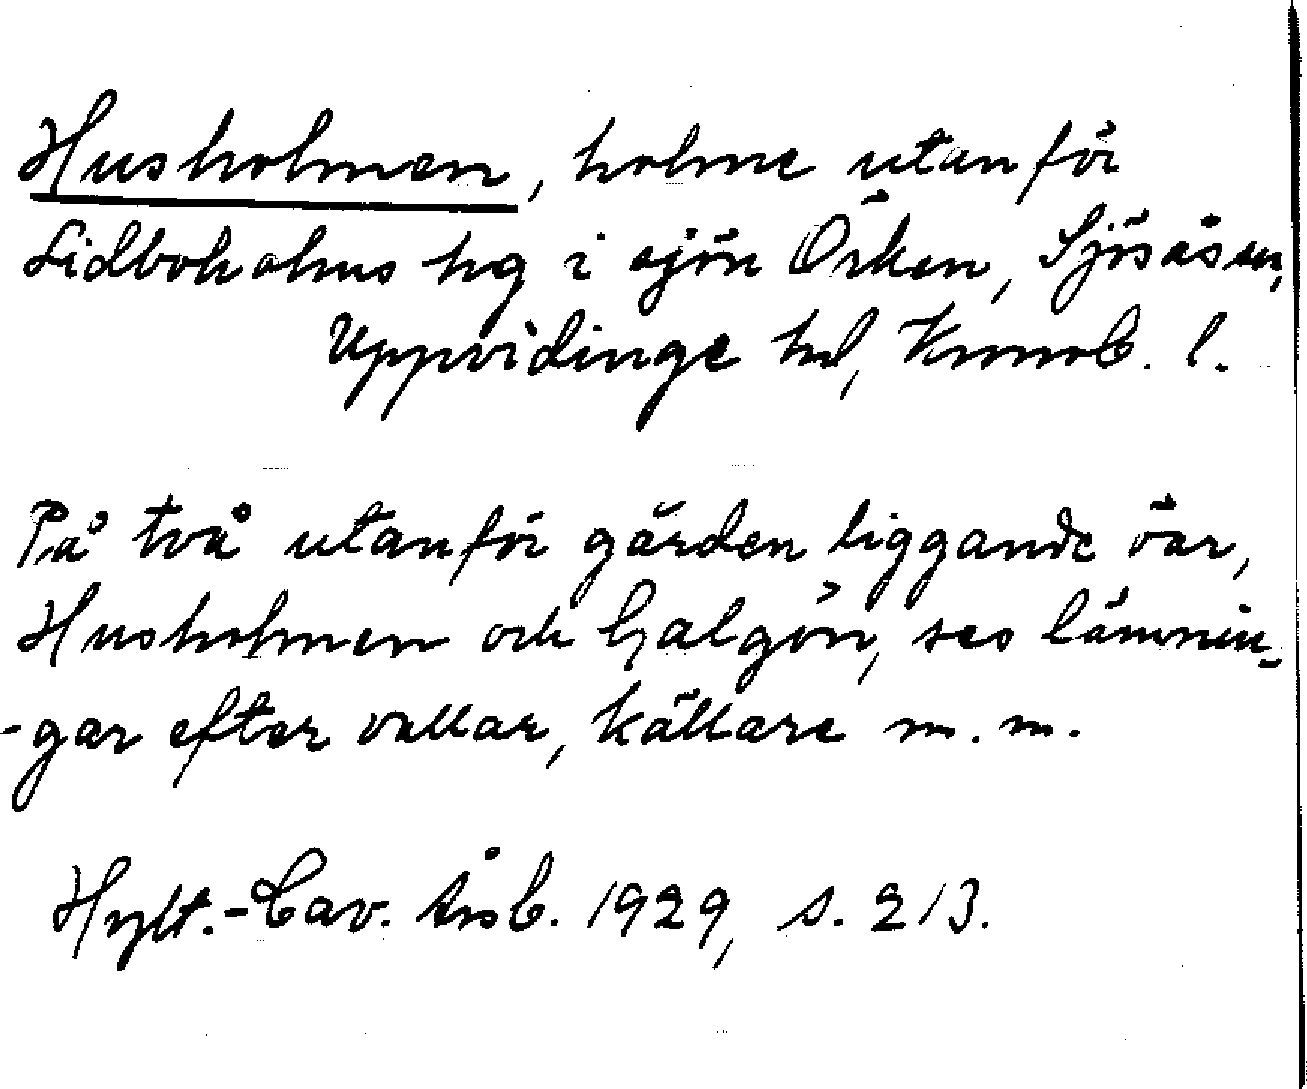 Husholmen, holme utanför
Lidboholms hg i sjön Örken, Sjösåsen,
Uppvidinge hd, Kronob. l.
På två utanför gården liggande öar,
Husholmen och Galgön, ses lämnin-
-gar efter vallar, källare m. m.
Hylt.-Cav. Årsb. 1929, s. 213.